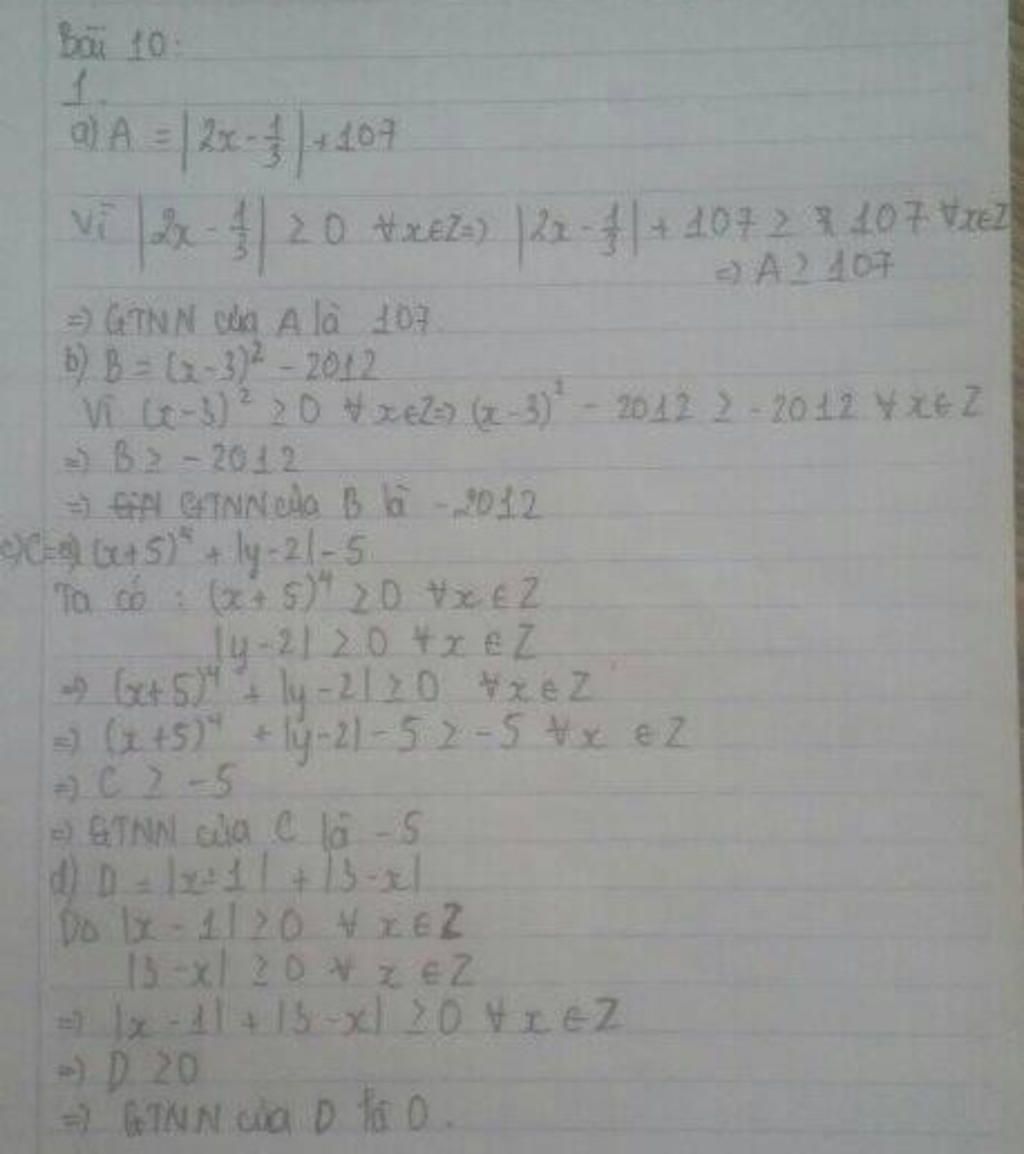 Bài 10:
1.
a) A = |2x - 1/3| + 107
Vì |2x - 1/3| ≥ 0 ∀x∈Z => |2x - 1/3| + 107 ≥ 107 ∀x∈Z
=> A ≥ 107
=> GTNN của A là 107
b) B = (x-3)² - 2012
Vì (x-3)² ≥ 0 ∀x∈Z => (x-3)² - 2012 ≥ -2012 ∀x∈Z
=> B ≥ -2012
=> GTNN của B là -2012
c) C = (x+5)⁴ + |y-2| - 5
Ta có : (x+5)⁴ ≥ 0 ∀x∈Z
|y-2| ≥ 0 ∀x∈Z
=> (x+5)⁴ + |y-2| ≥ 0 ∀x∈Z
=> (x+5)⁴ + |y-2| - 5 ≥ -5 ∀x ∈Z
=> C ≥ -5
=> GTNN của C là -5
d) D = |x-1| + |3-x|
Do |x-1| ≥ 0 ∀ x∈Z
|3-x| ≥ 0 ∀ x∈Z
=> |x-1| + |3-x| ≥ 0 ∀ x∈Z
=> D ≥ 0
=> GTNN của D là 0.